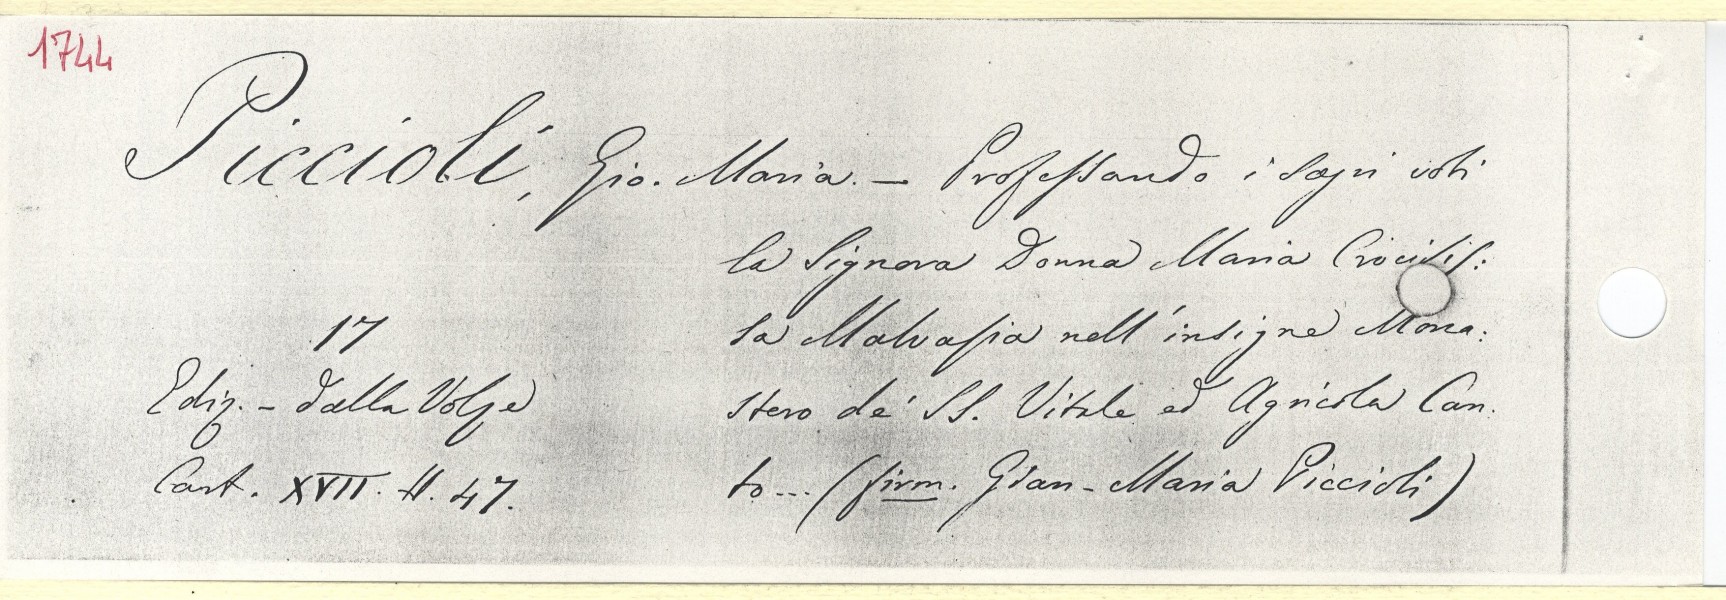 1744
Piccioli, Gio. Maria. — Professando i sagri voti
la Signora Donna Maria Crocifis:
sa Malvasia nell'insigne Mona:
17
stero de' SS. Vitale ed Agricola Can.
Ediz. - dalla Volpe
to... (firm. Gian-Maria Piccioli)
Cart. XVII. H. 47.